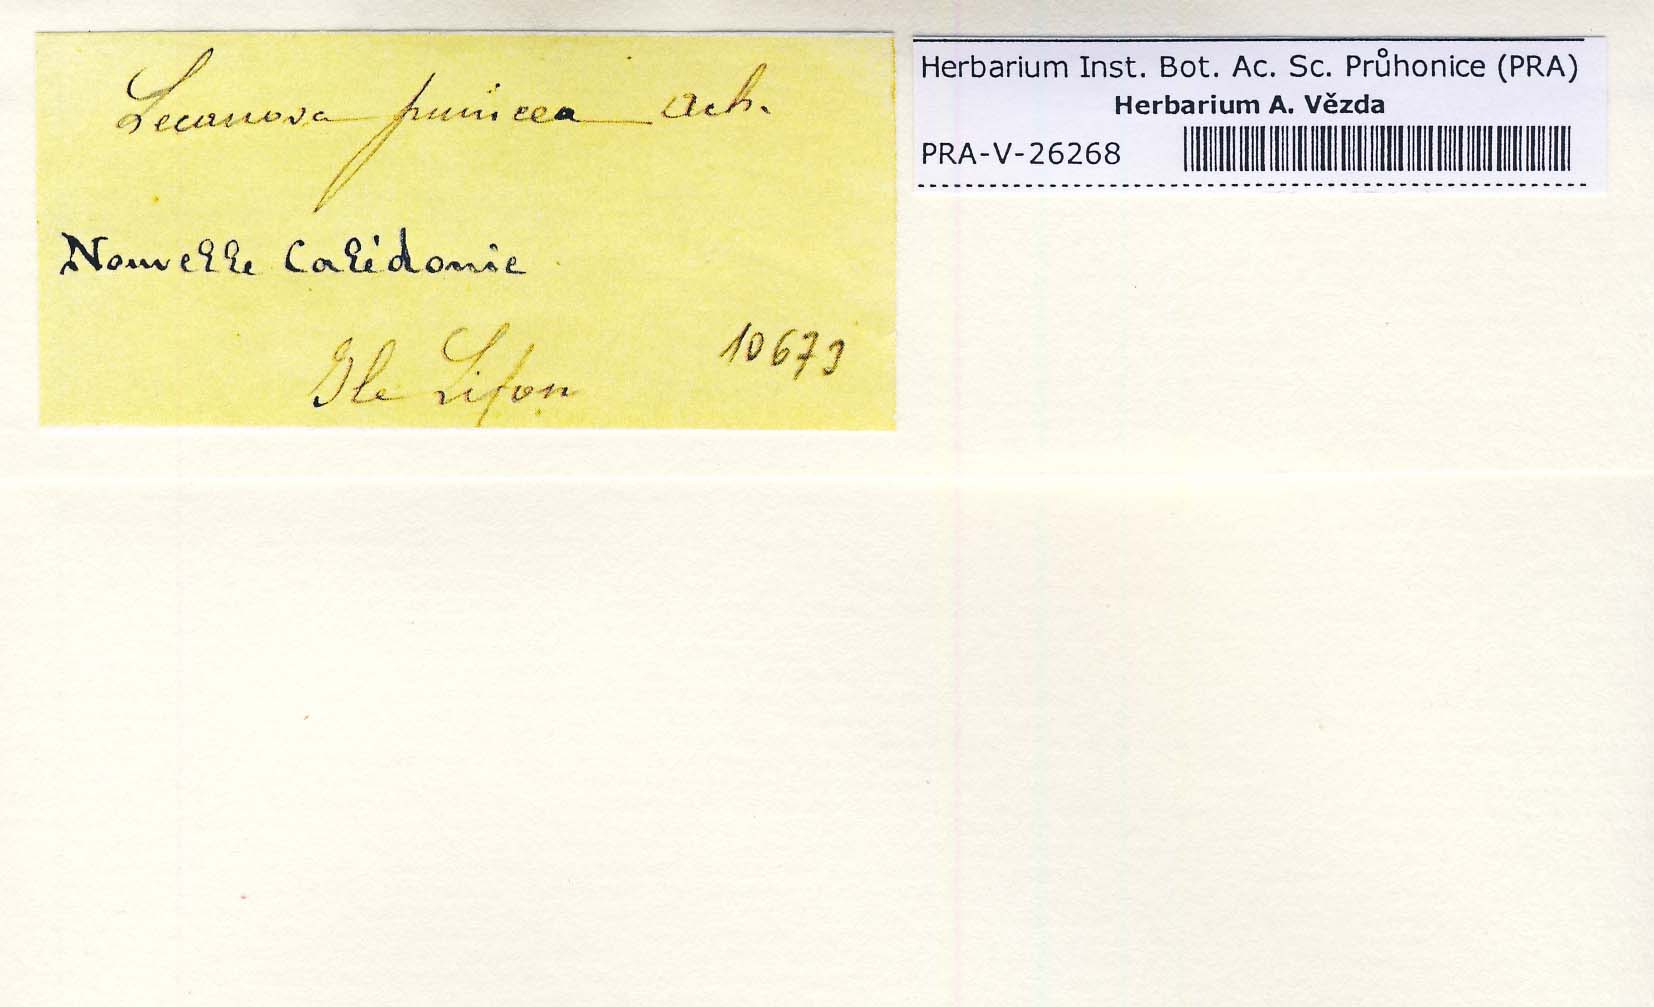 Lecanora punicea Ach.
Nouvelle Calédonie
Ile Lifou 10673
Herbarium Inst. Bot. Ac. Sc. Průhonice (PRA)
Herbarium A. Vězda
PRA-V-26268